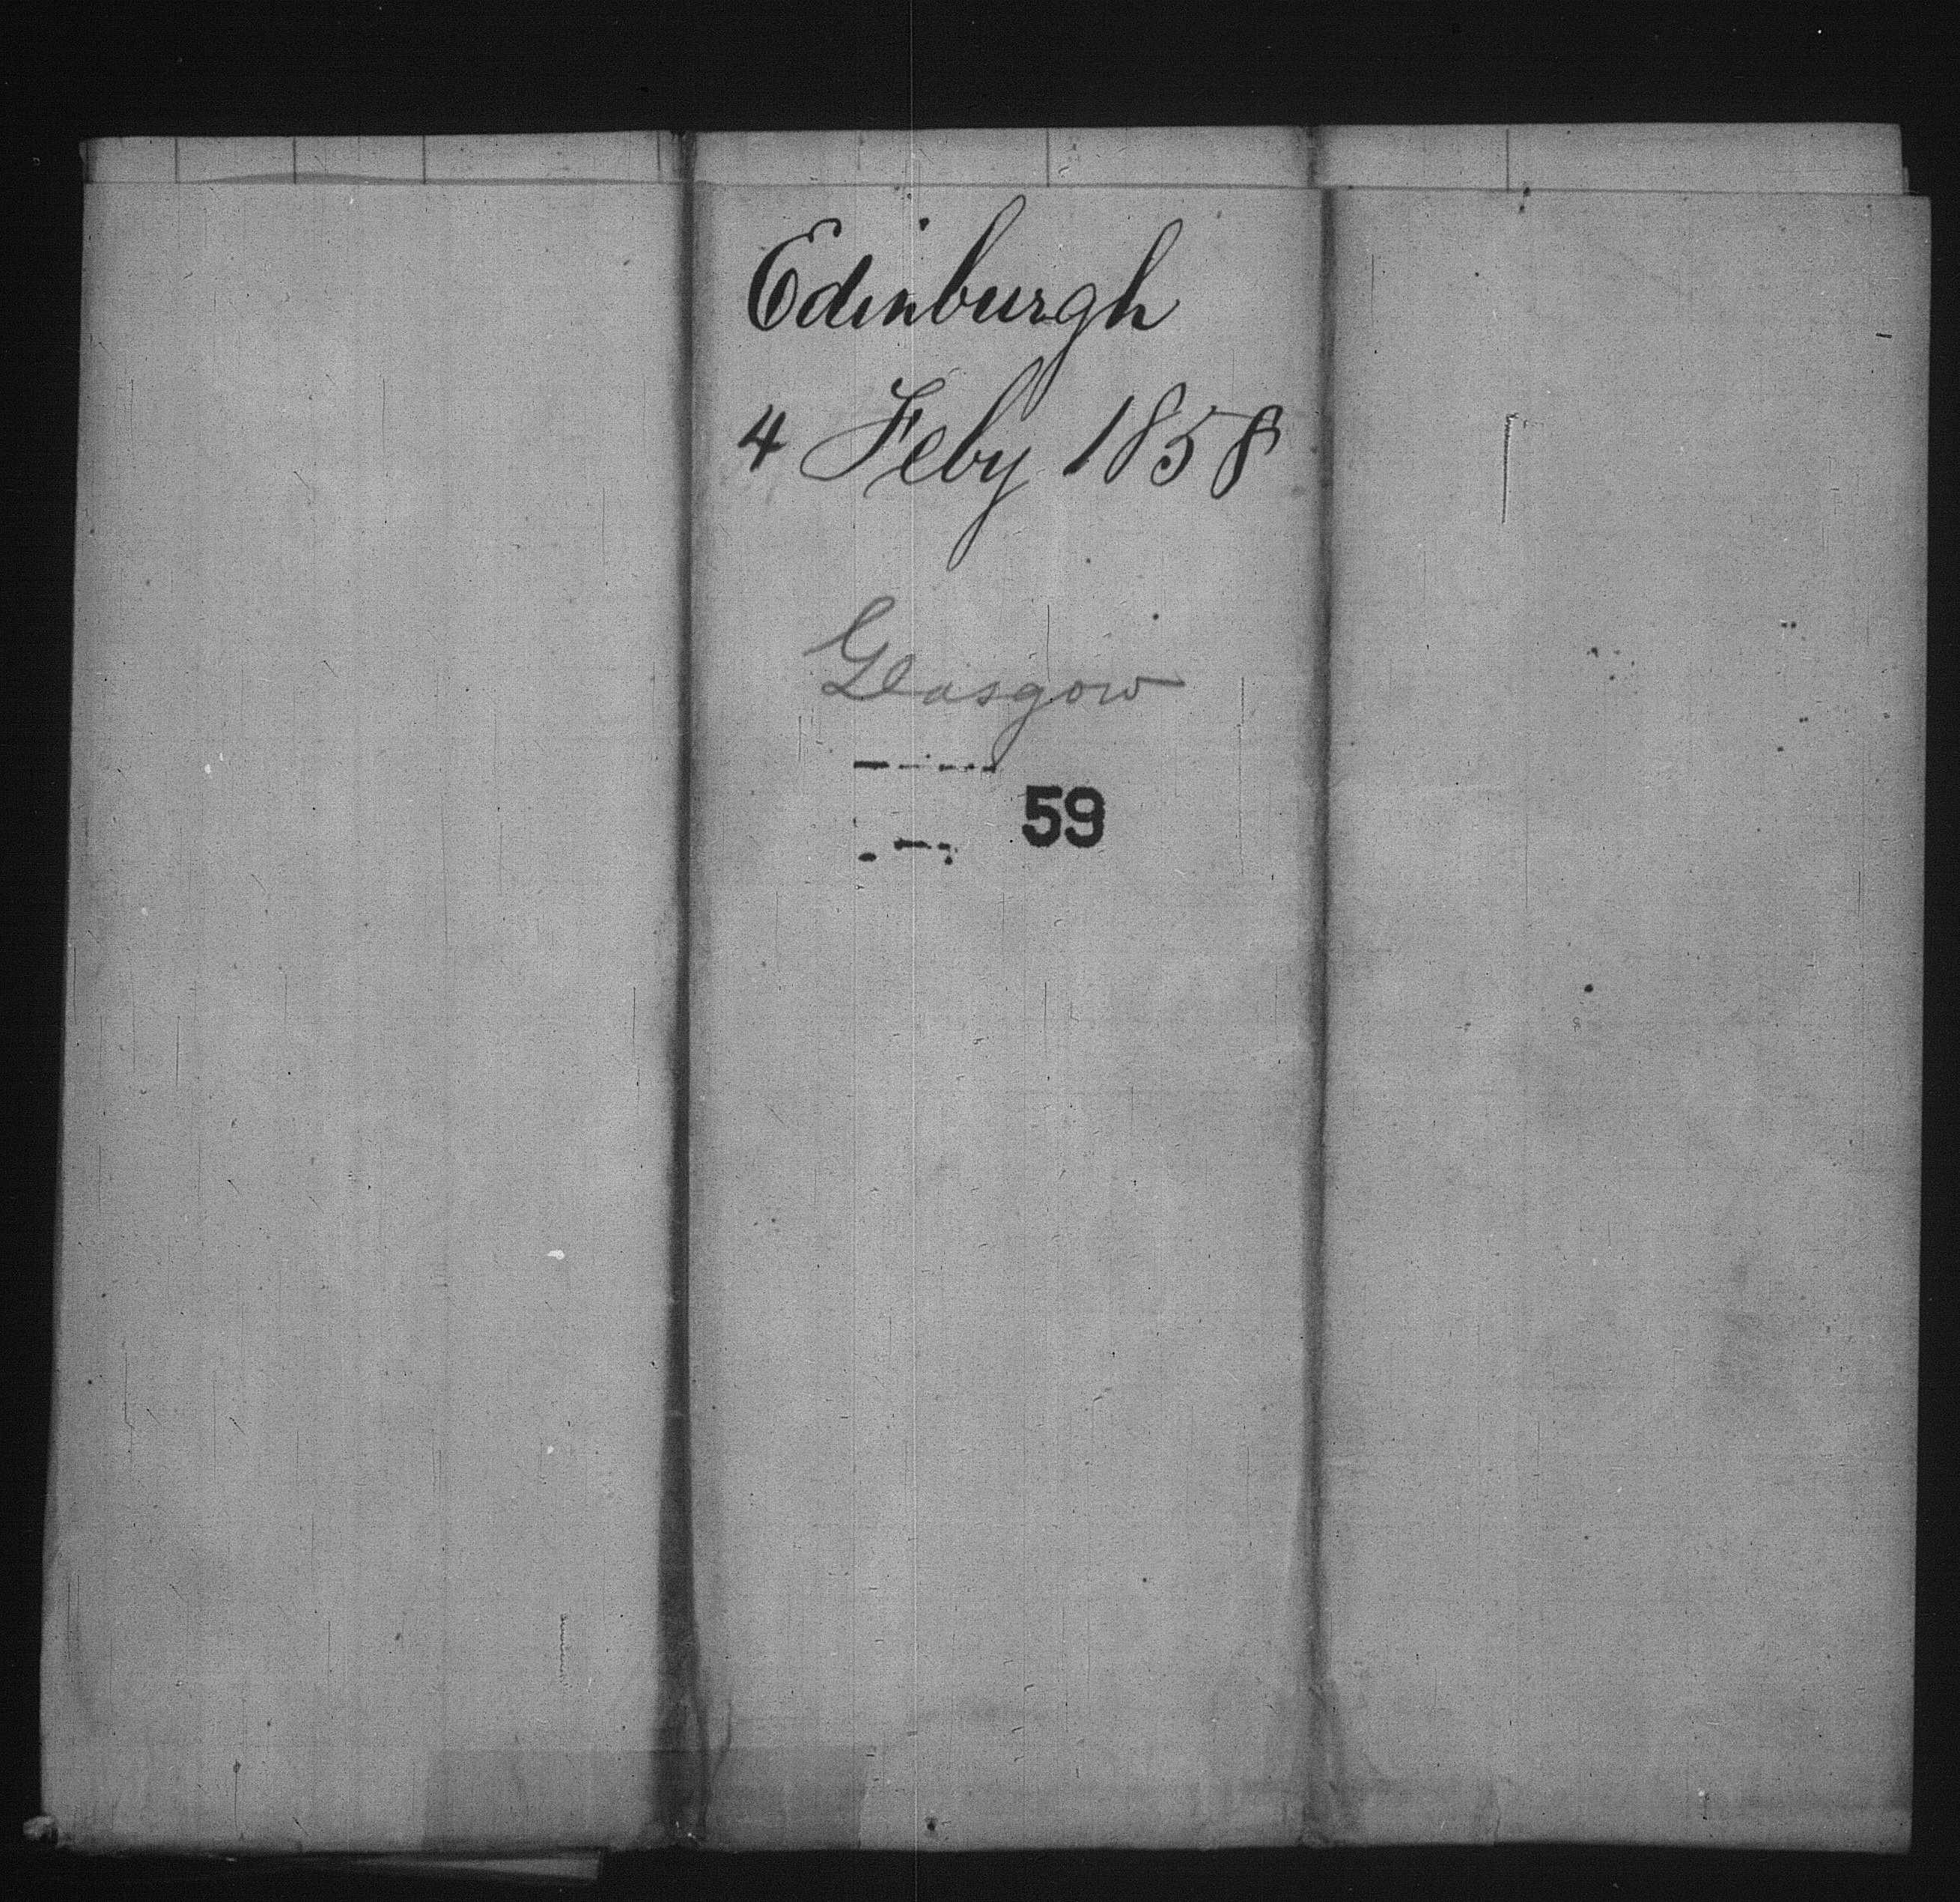 Edinburgh
4 Feby 1858
Glasgow
59